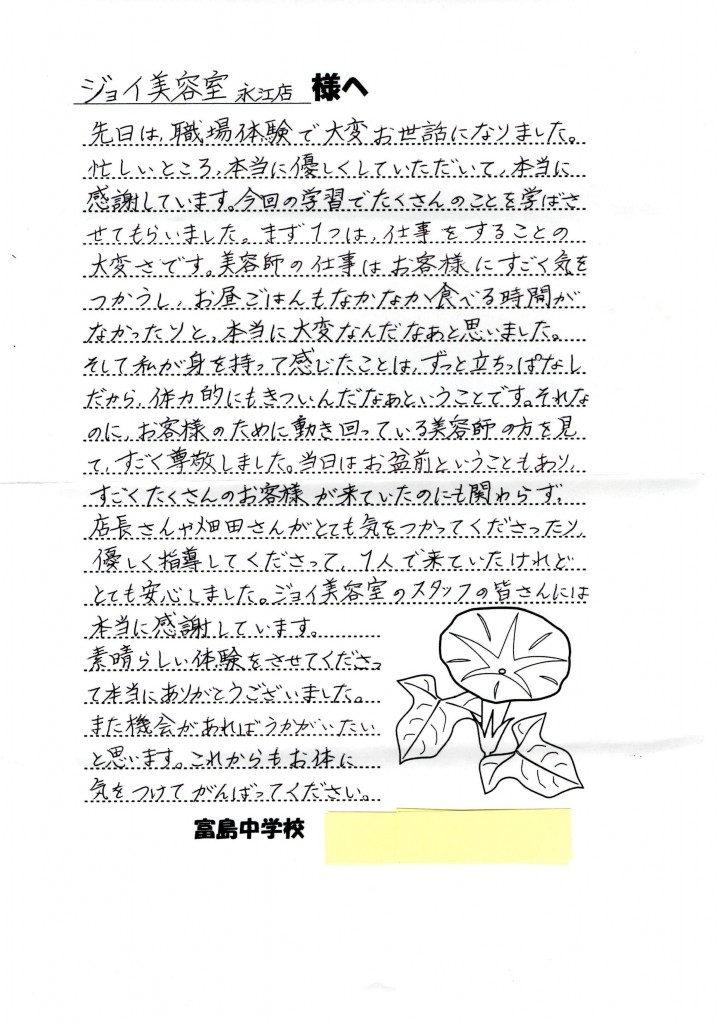 ジョイ美容室 永江店 様へ
先日は、職場体験で大変お世話になりました。
忙しいところ、本当に優しくしていただいて、本当に
感謝しています。今回の学習でたくさんのことを学ばさ
せてもらいました。まず1つは、仕事をすることの
大変さです。美容師の仕事はお客様にすごく気を
つかうし、お昼ごはんもなかなか食べる時間が
なかったりと、本当に大変なんだなぁと思いました。
そして私が身を持って感じたことは、ずっと立ちっぱなし
だから、体力的にもきついんだなぁということです。それな
のに、お客様のために動き回っている美容師の方を見
て、すごく尊敬しました。当日はお盆前ということもあり、
すごくたくさんのお客様が来ていたのにも関わらず、
店長さんや畑田さんがとても気をつかってくださったり、
優しく指導してくださって、1人で来ていたけれど
とても安心しました。ジョイ美容室のスタッフの皆さんには
本当に感謝しています。
素晴らしい体験をさせてくださっ
て本当にありがとうございました。
また機会があればうかがいたい
と思います。これからもお体に
気をつけてがんばってください。
富島中学校